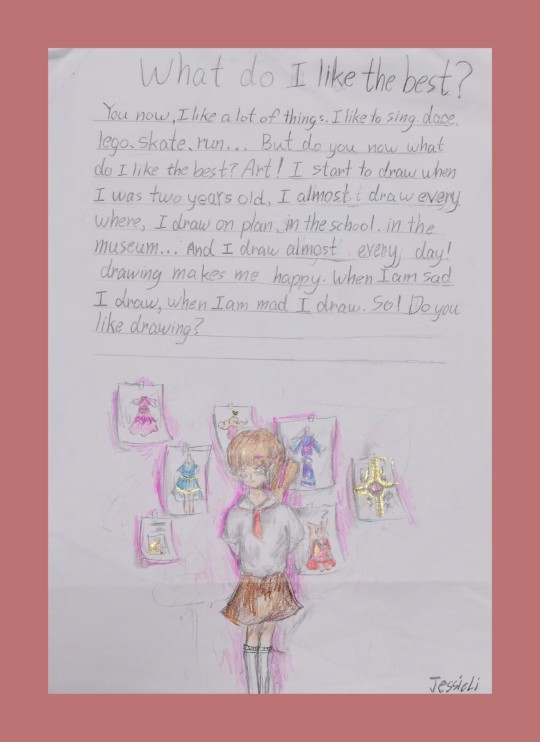 What do I like the best?
You now, I like a lot of things. I like to sing. dace.
lego. skate. run... But do you now what
do I like the best? Art! I start to draw when
I was two years old, I almost draw every
where, I draw on plan. in the school. in the
museum... And I draw almost every day!
drawing makes me happy. When I am sad
I draw, when I am mad I draw. So! Do you
like drawing?